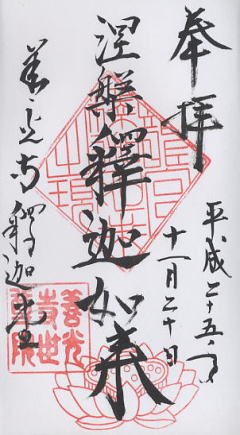 奉拝
平成二十五年
十一月二十日
涅槃釋迦如来
善光寺 釋迦堂
善光
世尊
院